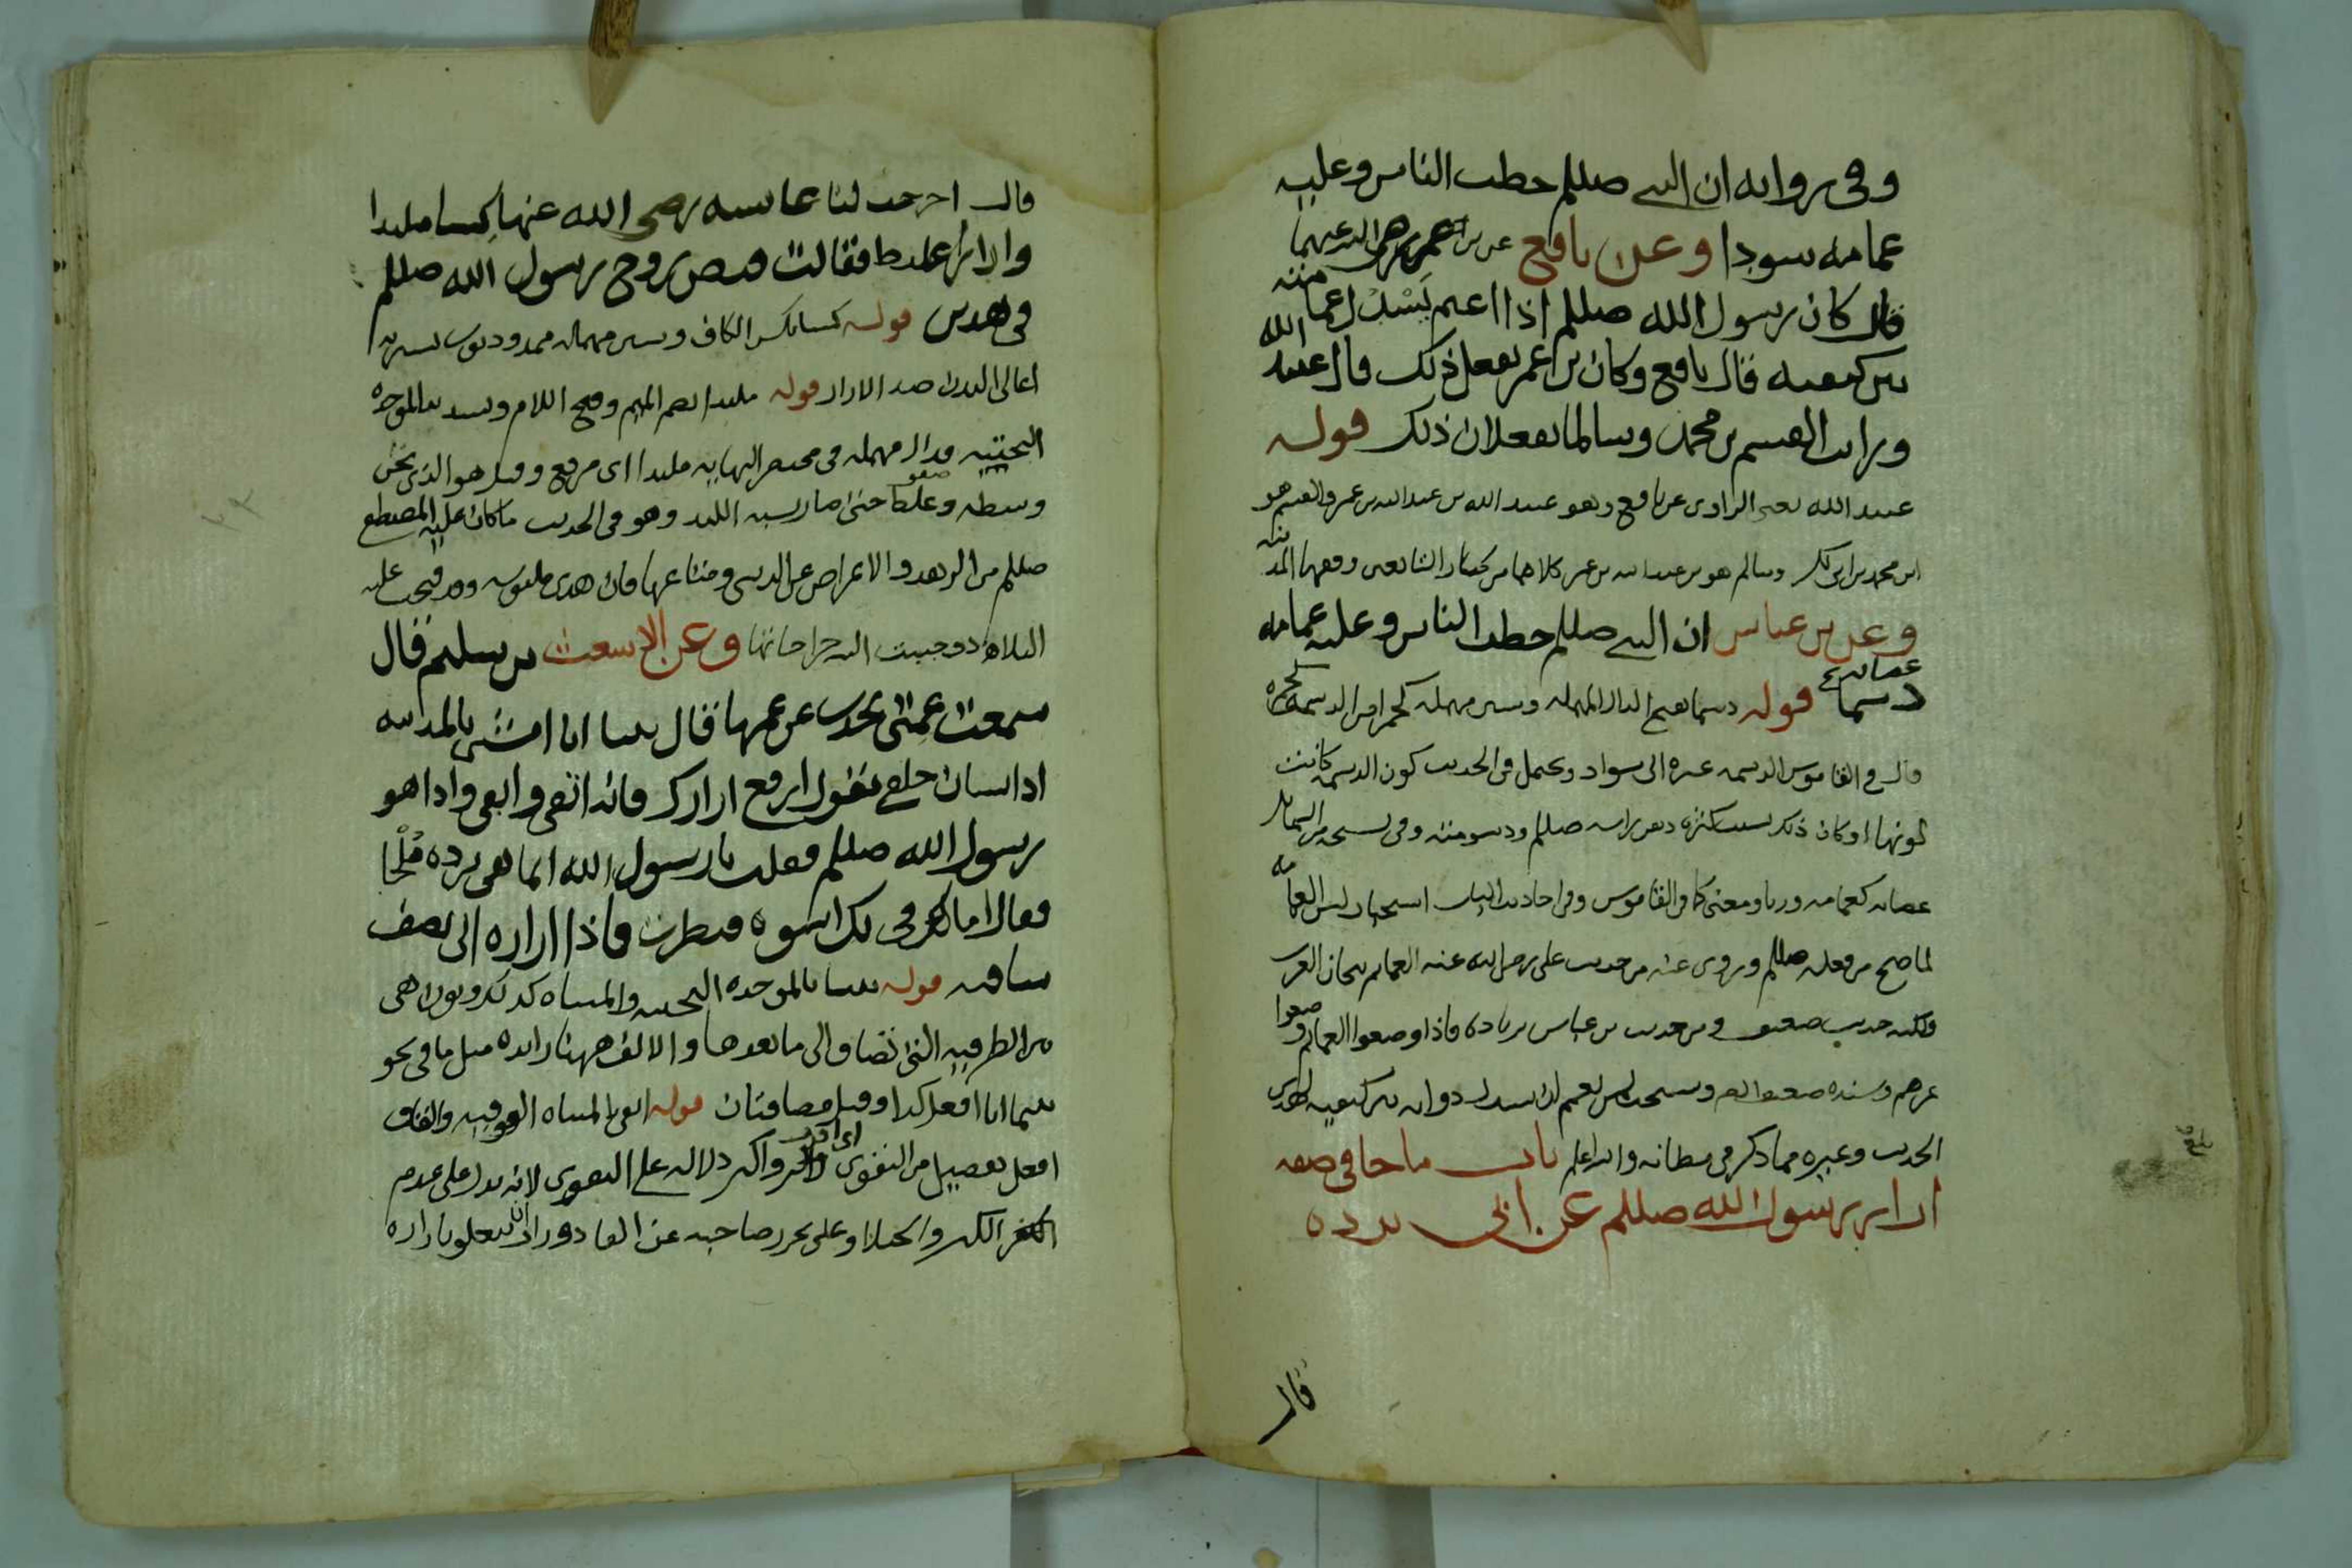 وفي رواية ان النبي صللم خطب الناس وعليه
عمامه سودا وعن نافع عن بن عمر رضي الله عنهما
قال كان رسول الله صللم اذا اعتم يَسْدُل عمامته
بين كتفيه قال نافع وكان بن عمر يفعل ذلك قال عبيد الله
ورايت القسم بن محمد وسالما يفعلان ذلك قوله
عبيد الله يعني الراوي عن نافع وهو عبيد الله بن عبد الله بن عمر والقسم هو
ابن محمد بن ابي بكر وسالم هو بن عبد الله بن عمر كلاهما من كبار التابعين وفقها المدينه
وعن بن عباس ان النبي صللم خطب الناس وعليه عمامه
عصابه
دسما قوله دسما بفتح الدال المهمله وسين مهمله كحمرا من الدسمه كحمره
قال في القاموس الدسمه غبره الى سواد ويحتمل في الحديث كون الدسمه كانت
لونها او كان ذلك بسبب كثرة دهن راسه صللم ودسومته وفي نسخه من الشمايل
عصابه كعمامه وزنا ومعنى كما في القاموس وفي احاديث الباب استحباب لبس العمامه
لما صح من فعله صللم وروي عنه من حديث علي رضي الله عنه العمايم تيجان العرب
ولكنه حديث ضعيف ومن حديث بن عباس بزيادة فاذا وضعوا العمايم وضعوا
عزهم وسنده ضعيف ويستحب لمن تعمم ان يسدل ذوابه بين كتفيه لهذين
الحديث وغيره مما ذكر في مظانه والله اعلم باب ما جا في صفه
ازار رسول الله صللم عن ابي بردة
قال
قال اخرجت لنا عايشه رضي الله عنها كسا ملبدا
وازارا غليظا فقالت قبض روح رسول الله صللم
في هذين قوله كسا بكسر الكاف وسين مهمله ممدود ثوب يستر به
اعالي البدن ضد الازار قوله ملبدا بضم الميم وفتح اللام وتشديد الموحده
التحتيه ودال مهمله في مختصر النهايه ملبدا اى مرقع وقيل هو الذي ثخن
وسطه وغلظ حتى صار يشبه اللبد وهو في الحديث ما كان عليه المصطفى
صللم من الزهد والاعراض عن الدنيا ومتاعها فان هذين ملبوسه وقد فتحت عليه
البلاد وجبيت اليه خراجاتها وعن الاشعث بن سليم قال
سمعت عمتي تحدث عن عمها قال بينا انا امشي بالمدينه
اذا انسان خلفي يقول ارفع ازارك فانه اتقى وابقى واذا هو
رسول الله صللم فقلت يا رسول الله انما هي برده مَلْحا
فقال اما لك في اسوه فنظرت فاذا ازاره الى نصف
ساقيه قوله بينا بالموحده التحتيه والمثناه كذلك ونون هي
بين الظرفيه التي تضاف الى ما بعدها والالف ههنا زايده مثل ما في نحو
بينما انا افعل كذا وقيل مضافتان قوله اتقى بالمثناه الفوقيه والقاف
افعل تفصيل من التقوى اى اقرب واكثر دلاله على التقوى لانه يدل على عدم
الكبر والخيلا وعلى تحرز صاحبه عن القاذورات ان تتعلق بازاره